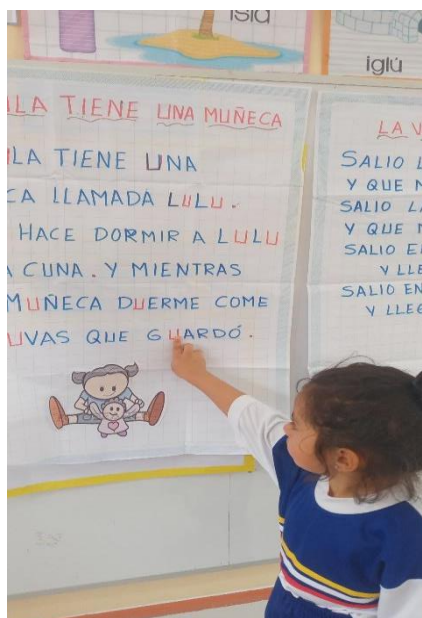 isla
iglú
LA TIENE UNA MUÑECA
LA TIENE UNA
CA LLAMADA LULU.
HACE DORMIR A LULU
A CUNA. Y MIENTRAS
MUÑECA DUERME COME
UVAS QUE GUARDÓ.
LA V
SALIO L
Y QUE
SALIO LA
Y QUE
SALIO E
Y LLE
SALIO EN
Y LLEG